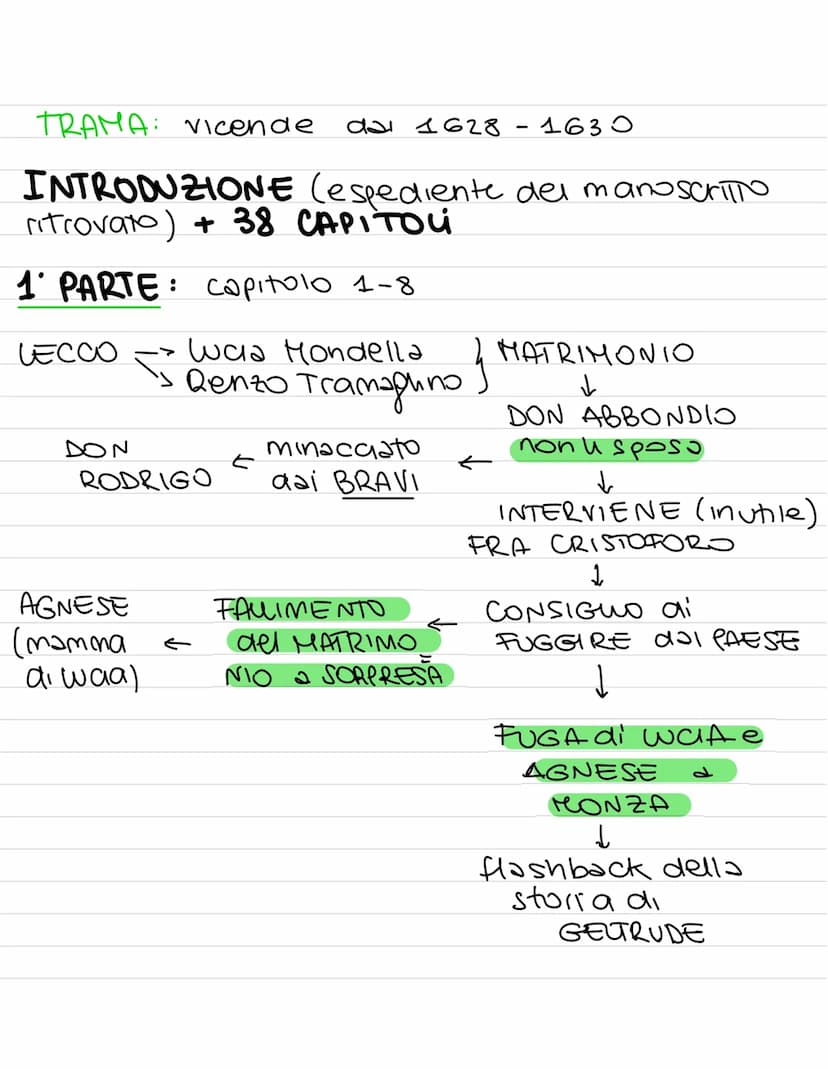 TRAMA: vicende dal 1628 - 1630
INTRODUZIONE (espediente del manoscritto
ritrovato) + 38 CAPITOLI
1° PARTE: capitolo 1-8
LECCO → Lucia Mondella } MATRIMONIO
↘ Renzo Tramaglino
↓
DON ABBONDIO
DON ← minacciato ← non li sposa
RODRIGO dai BRAVI ↓
INTERVIENE (inutile)
FRA CRISTOFORO
↓
AGNESE FALLIMENTO ← CONSIGLIO di
(mamma ← del MATRIMO FUGGIRE dal PAESE
di Lucia) NIO a SORPRESA ↓
FUGA di LUCIA e
AGNESE a
MONZA
↓
flashback della
storia di
GELTRUDE